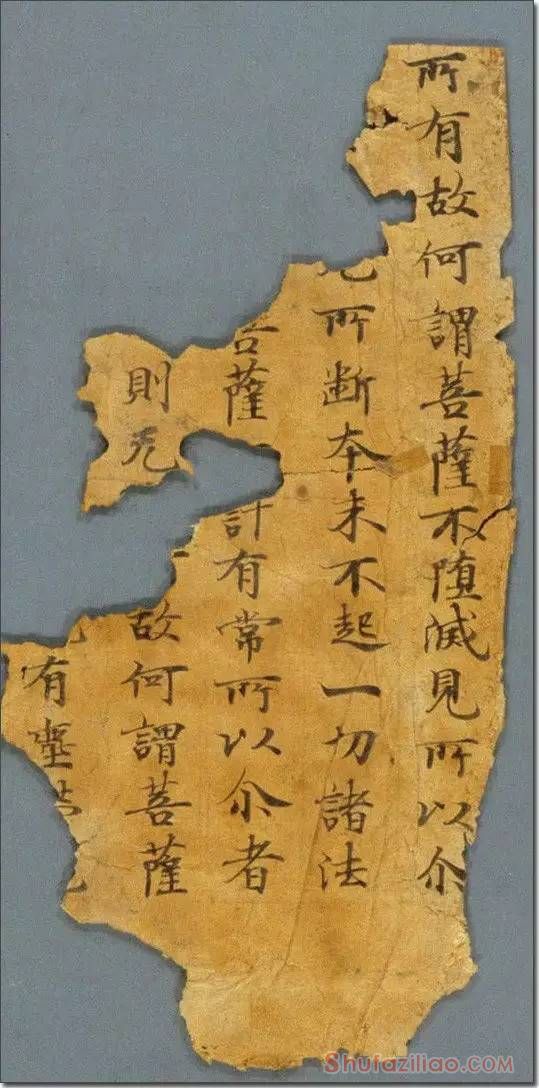 所有故何謂菩薩不墮滅見所以尒
所断本末不起一切諸法
菩薩計有常所以尒者
則 故何謂菩薩
有
Shufaziliao.com